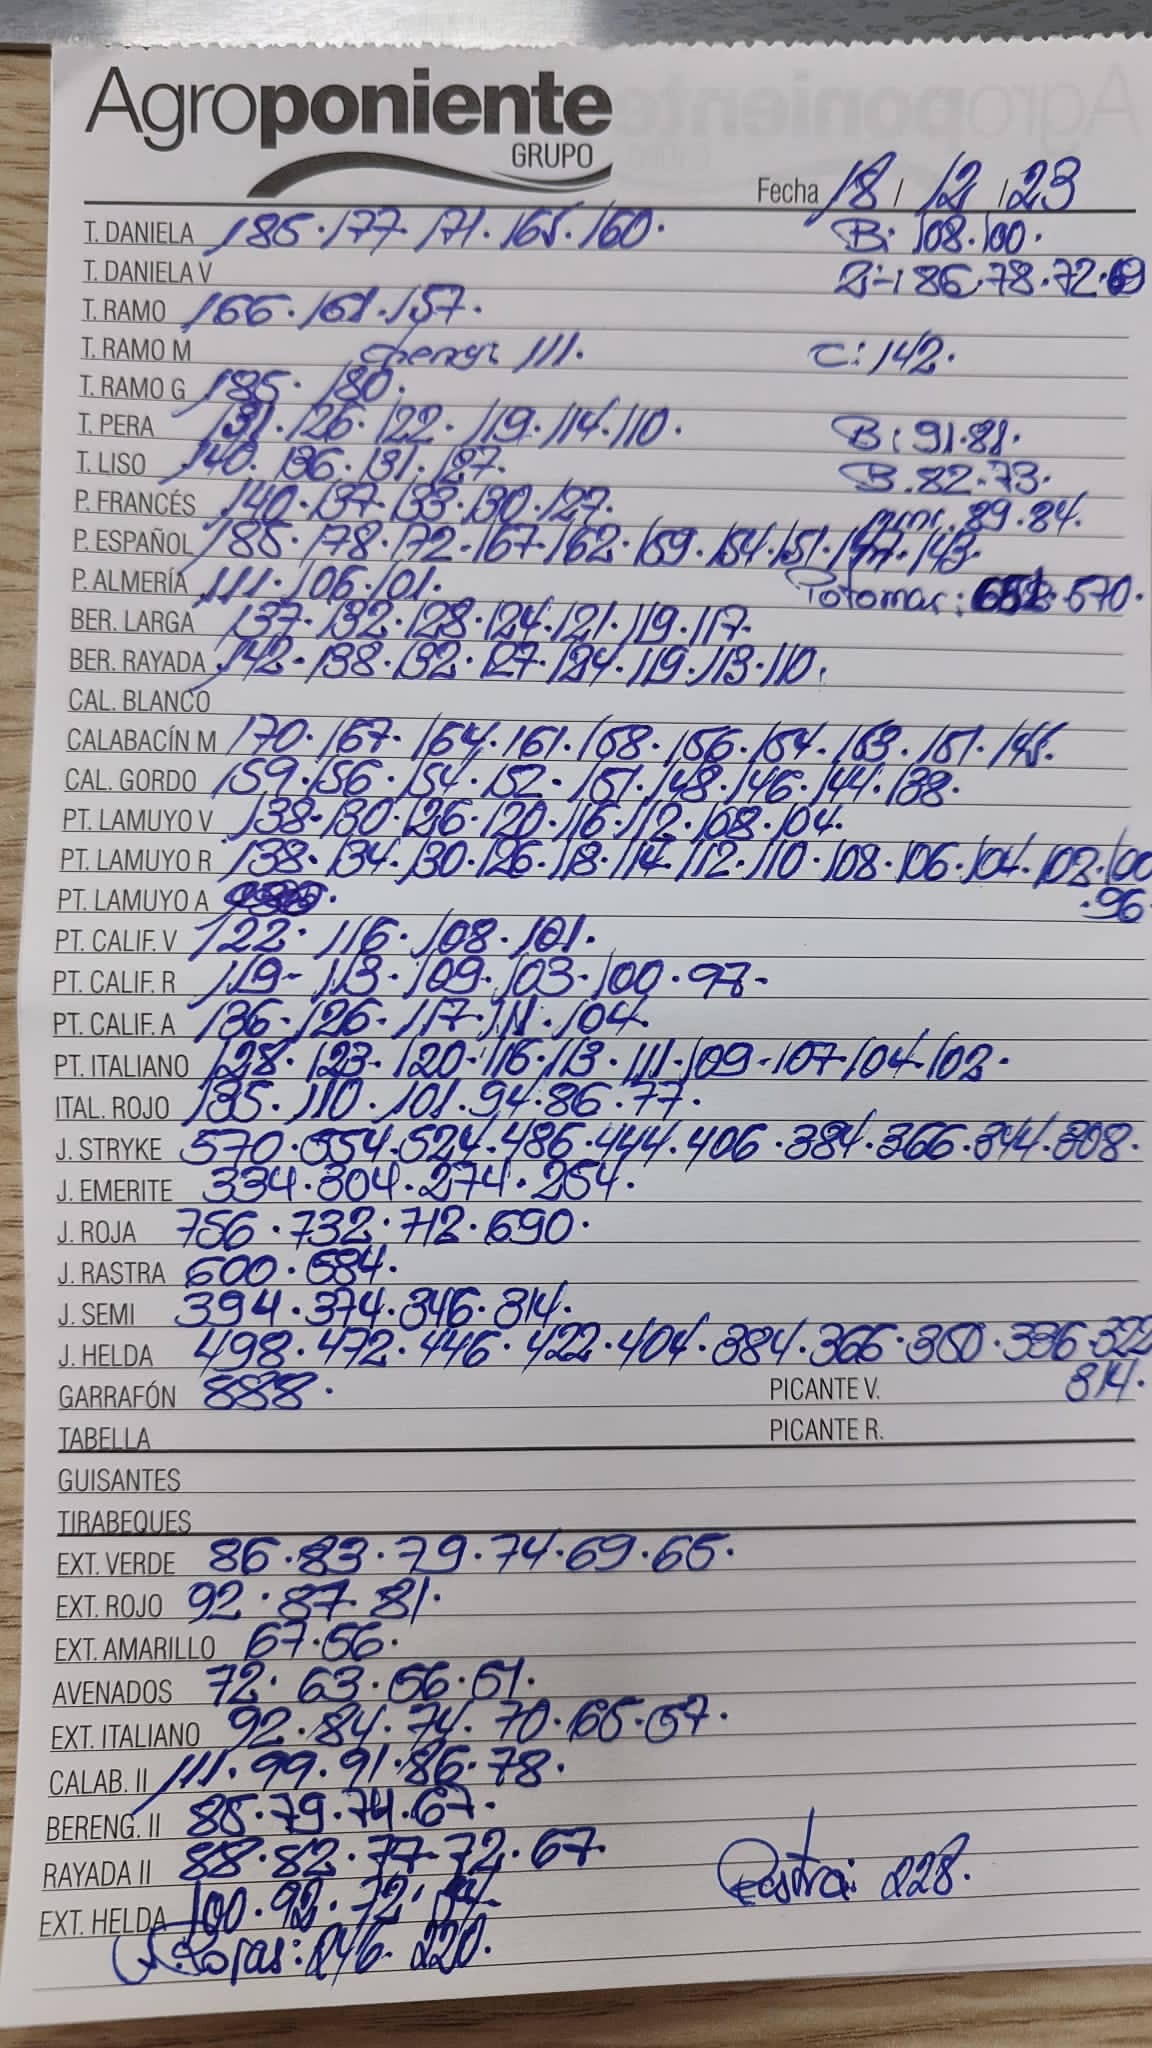 Agroponiente
GRUPO
Fecha 18 / 12 / 23
T. DANIELA 185·177·171·165·160· B: 108·100·
T. DANIELA V 2:- 86·78·72·69
T. RAMO 166·161·157·
T. RAMO M 111· C: 142·
T. RAMO G 185· 180·
T. PERA 131·126·122·119·114·110· B: 91·81·
T. LISO 140·136·131·127· B·82·73·
P. FRANCÉS 140·137·133·130·127· mini·89·84·
P. ESPAÑOL 185·178·172·167·162·159·154·151·147·143·
P. ALMERÍA 111·106·101· ·570·
BER. LARGA 137·132·128·124·121·119·117·
BER. RAYADA 142·138·132·127·124·119·113·110·
CAL. BLANCO
CALABACÍN M 170·167·164·161·158·156·154·153·151·145·
CAL. GORDO 159·156·154·152·151·148·146·144·138·
PT. LAMUYO V 138·130·126·120·116·112·108·104·
PT. LAMUYO R 138·134·130·126·118·114·112·110·108·106·104·102·100
PT. LAMUYO A ·96·
PT. CALIF. V 122·116·108·101·
PT. CALIF. R 119-113·109·103·100·97-
PT. CALIF. A 136·126·117·111·104·
PT. ITALIANO 128·123·120·116·113·111·109·107·104·102·
ITAL. ROJO 135·110·101·94·86·77·
J. STRYKE 570·554·524·486·444·406·384·366·344·308·
J. EMERITE 334·304·274·254·
J. ROJA 756·732·712·690·
J. RASTRA 600·584·
J. SEMI 394·374·346·314·
J. HELDA 498·472·446·422·404·384·366·350·336·322
GARRAFÓN 888· PICANTE V. 314·
TABELLA PICANTE R.
GUISANTES
TIRABEQUES
EXT. VERDE 86·83·79·74·69·65·
EXT. ROJO 92·87·81·
EXT. AMARILLO 67·56·
AVENADOS 72·63·56·51·
EXT. ITALIANO 92·84·74·70·65·57·
CALAB. II 111·99·91·86·78·
BERENG. II 85·79·74·67·
RAYADA II 88·82·77·72·67·
Rastra: 228·
EXT. HELDA 100·92·72·
Rojas: 246·220·